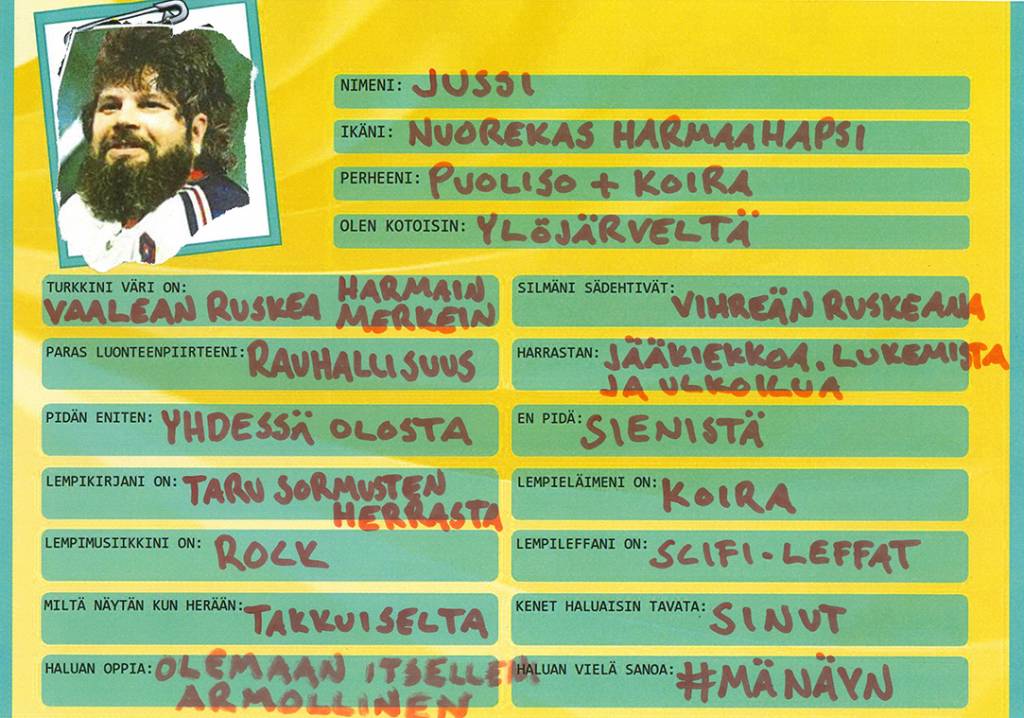 NIMENI: JUSSI
IKÄNI: NUOREKAS HARMAAHAPSI
PERHEENI: PUOLISO + KOIRA
OLEN KOTOISIN: YLÖJÄRVELTÄ
TURKKINI VÄRI ON: VAALEAN RUSKEA HARMAIN
MERKEIN
SILMÄNI SÄDEHTIVÄT: VIHREÄN RUSKEANA
PARAS LUONTEENPIIRTEENI: RAUHALLISUUS
HARRASTAN: JÄÄKIEKKOA, LUKEMISTA
JA ULKOILUA
PIDÄN ENITEN: YHDESSÄ OLOSTA
EN PIDÄ: SIENISTÄ
LEMPIKIRJANI ON: TARU SORMUSTEN
HERRASTA
LEMPIELÄIMENI ON: KOIRA
LEMPIMUSIIKKINI ON: ROCK
LEMPILEFFANI ON: SCIFI-LEFFAT
MILTÄ NÄYTÄN KUN HERÄÄN: TAKKUISELTA
KENET HALUAISIN TAVATA: SINUT
HALUAN OPPIA: OLEMAAN ITSELLENI
ARMOLLINEN
HALUAN VIELÄ SANOA: #MÄNÄYN